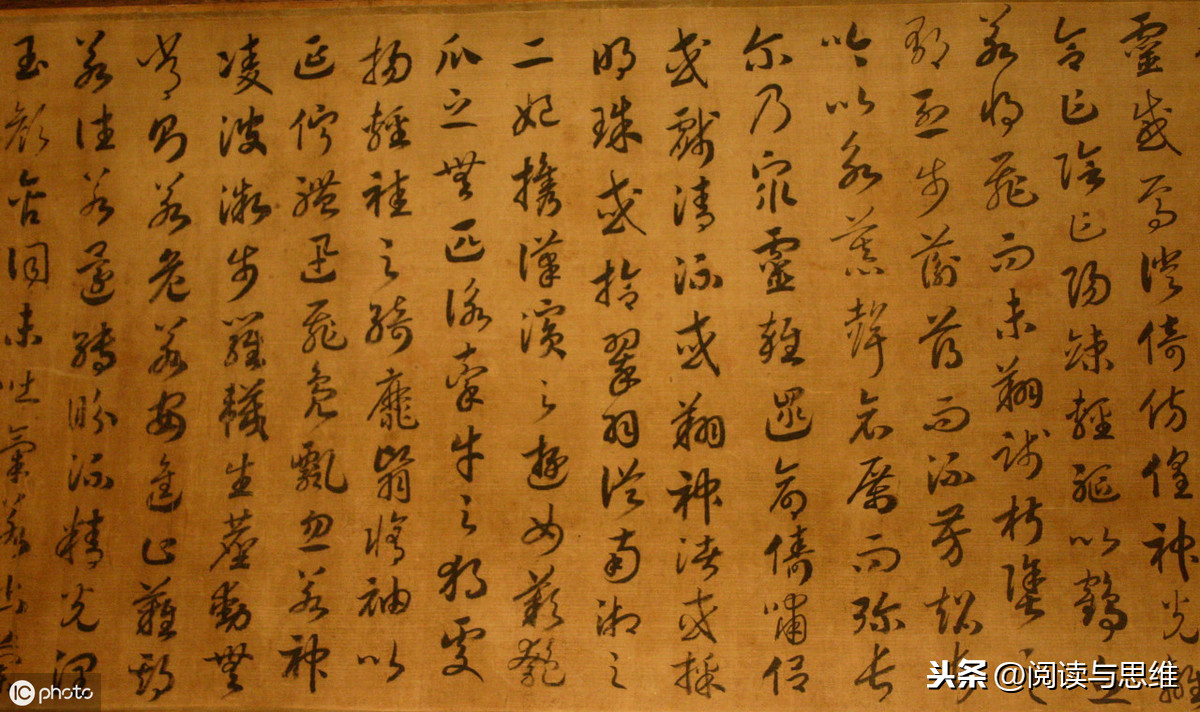 靈感焉徙倚傍偟神光離
合乍陰乍陽竦輕軀以鶴立
若將飛而未翔踐椒塗之
郁烈步蘅薄而流芳超長
吟以永慕聲哀厲而彌長
尔乃眾靈雜遝命儔嘯侶
或戲清流或翔神渚或採
明珠或拾翠羽從南湘之
二妃攜漢濱之遊女歎匏
瓜之無匹詠牽牛之獨處
揚輕袿之猗靡翳脩袖以
延佇體迅飛鳧飄忽若神
凌波微步羅襪生塵動無
常則若危若安進止難期
若往若還轉眄流精光潤
玉顏含詞未吐氣若幽蘭
IC photo
头条 @阅读与思维